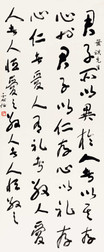 君子所以異於人者以其存
心也君子以仁存心以禮存
心仁者愛人有禮者敬人愛
人者人恆愛之敬人者人恆敬之